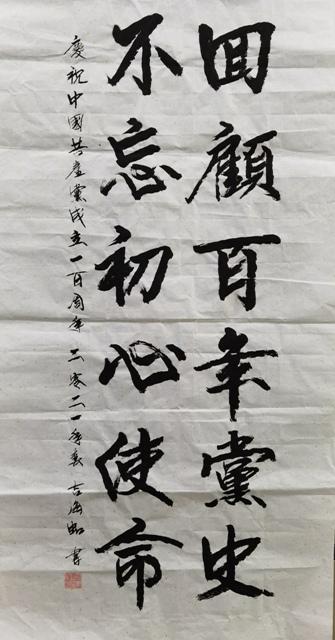 回顧百年黨史
不忘初心使命
慶祝中國共產黨成立一百周年 二零二一年春 吉海